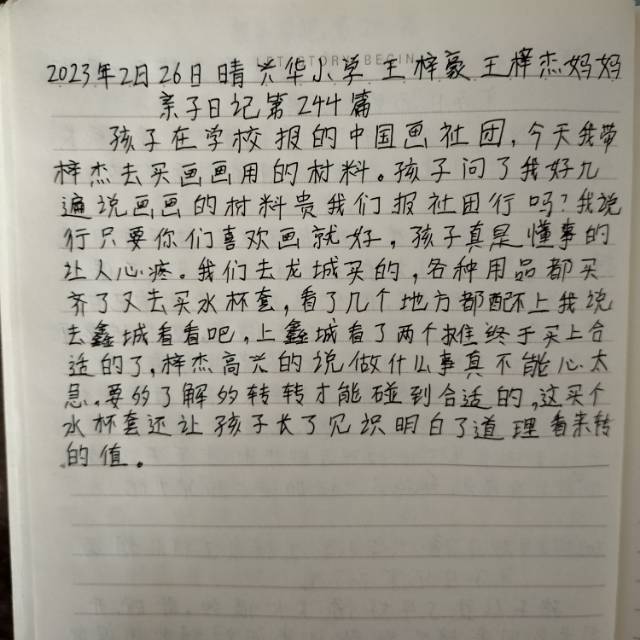 2023年2月26日晴 兴华小学 王梓豪 王梓杰妈妈
亲子日记第244篇
孩子在学校报的中国画社团，今天我带
梓杰去买画画用的材料。孩子问了我好几
遍说画画的材料贵我们报社团行吗？我说
行只要你们喜欢画就好，孩子真是懂事的
让人心疼。我们去龙城买的，各种用品都买
齐了又去买水杯套，看了几个地方都配不上我说
去鑫城看看吧，上鑫城看了两个摊终于买上合
适的了，梓杰高兴的说做什么事真不能心太
急，要多了解多转转才能碰到合适的，这买个
水杯套还让孩子长了见识明白了道理看来转
的值。